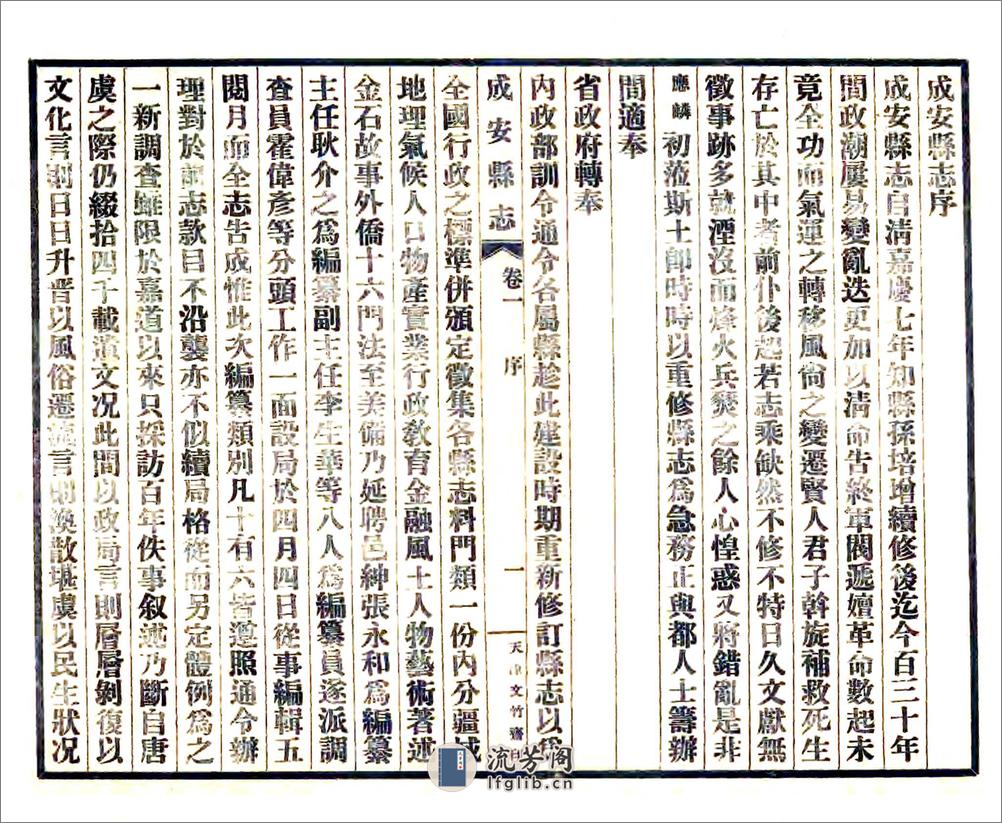 成安縣志序
成安縣志自清嘉慶七年知縣孫培增續修後迄今百三十年
間政潮屢易變亂迭更加以清命告終軍閥遞嬗革命數起未
竟全功而氣運之轉移風尙之變遷賢人君子斡旋補救死生
存亡於其中者前仆後起若志乘缺然不修不特日久文獻無
徵事跡多就湮沒而烽火兵燹之餘人心惶惑又將錯亂是非
應麟初蒞斯土卽時時以重修縣志爲急務正與都人士籌辦
間適奉
省政府轉奉
內政部訓令通令各屬縣趁此建設時期重新修訂縣志以爲
成安縣志 卷一 序 一 天津文竹齋印
全國行政之標準併頒定徵集各縣志料門類一份內分疆域
地理氣候人口物產實業行政敎育金融風土人物藝術著述
金石故事外僑十六門法至美備乃延聘邑紳張永和爲編纂
主任耿介之爲編纂副主任李生華等八人爲編纂員遂派調
查員霍偉彥等分頭工作一面設局於四月四日從事編輯五
閱月而全志告成惟此次編纂類別凡十有六皆遵照通令辦
理對於前志款目不沿襲亦不似續局格從而另定體例爲之
一新調查雖限於嘉道以來只採訪百年佚事叙述乃斷自唐
虞之際仍綴拾四千載遺文况此間以政局言則層層剝復以
文化言則日日升晋以風俗遷流言則渙散堪虞以民生狀况
流芳阁
lfglib.cn